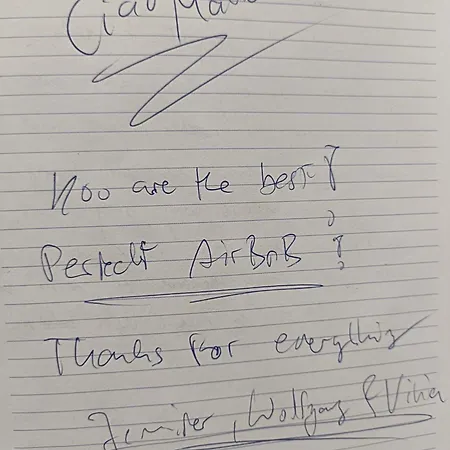 Ciao
You are the best!
Perfect AirBnB !
Thanks for everything
Jennifer, Wolfgang &